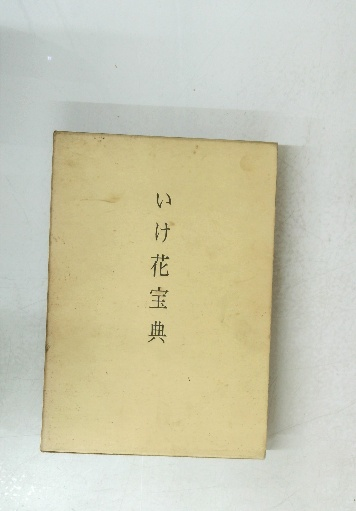 いけ花宝典